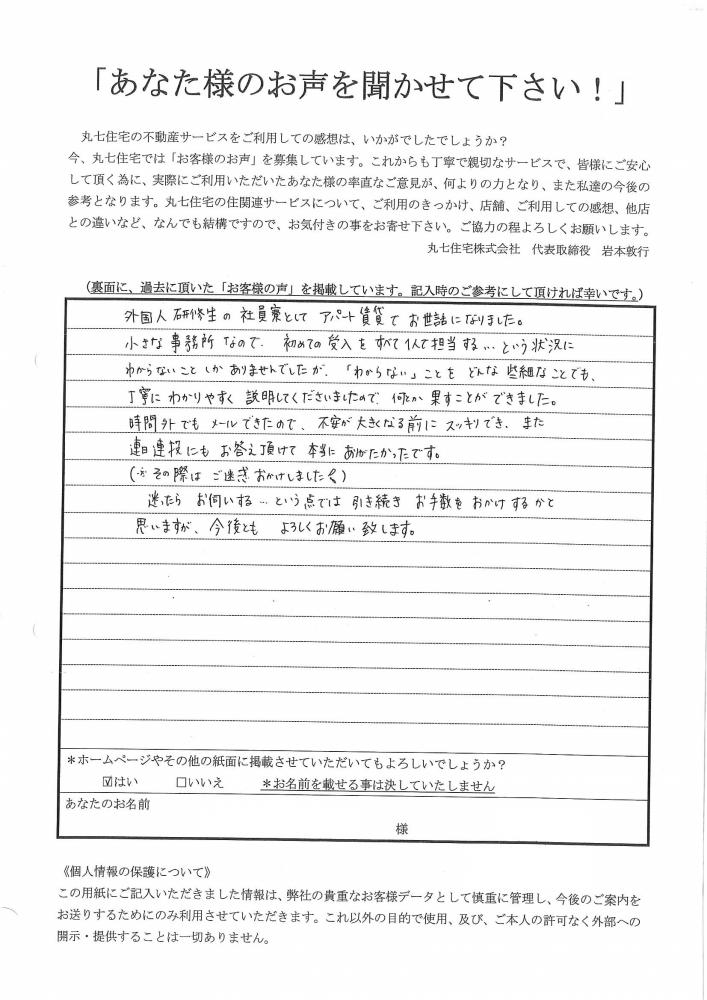 「あなた様のお声を聞かせて下さい！」
丸七住宅の不動産サービスをご利用しての感想は、いかがでしたでしょうか？
今、丸七住宅では「お客様のお声」を募集しています。これからも丁寧で親切なサービスで、皆様にご安心
して頂く為に、実際にご利用いただいたあなた様の率直なご意見が、何よりの力となり、また私達の今後の
参考となります。丸七住宅の住関連サービスについて、ご利用のきっかけ、店舗、ご利用しての感想、他店
との違いなど、なんでも結構ですので、お気付きの事をお寄せ下さい。ご協力の程よろしくお願いします。
丸七住宅株式会社　代表取締役　岩本敦行
（裏面に、過去に頂いた「お客様の声」を掲載しています。記入時のご参考にして頂ければ幸いです。）
外国人研修生の社員寮として アパート賃貸で お世話になりました。
小さな事務所なので、初めての受入をすべて1人で担当する…という状況に
わからないことしかありませんでしたが、「わからない」ことを どんな些細なことでも、
丁寧に わかりやすく 説明してくださいましたので、何とか果すことができました。
時間外でも メールできたので、不安が大きくなる前に スッキリでき、また
連日連投にも お答え頂けて 本当に ありがたかったです。
（その際は ご迷惑おかけしました）
迷ったら お伺いする…という点では 引き続き お手数を おかけするかと
思いますが、今後とも よろしくお願い致します。
＊ホームページやその他の紙面に掲載させていただいてもよろしいでしょうか？
☑はい　□いいえ　＊お名前を載せる事は決していたしません
あなたのお名前
様
《個人情報の保護について》
この用紙にご記入いただきました情報は、弊社の貴重なお客様データとして慎重に管理し、今後のご案内を
お送りするためにのみ利用させていただきます。これ以外の目的で使用、及び、ご本人の許可なく外部への
開示・提供することは一切ありません。